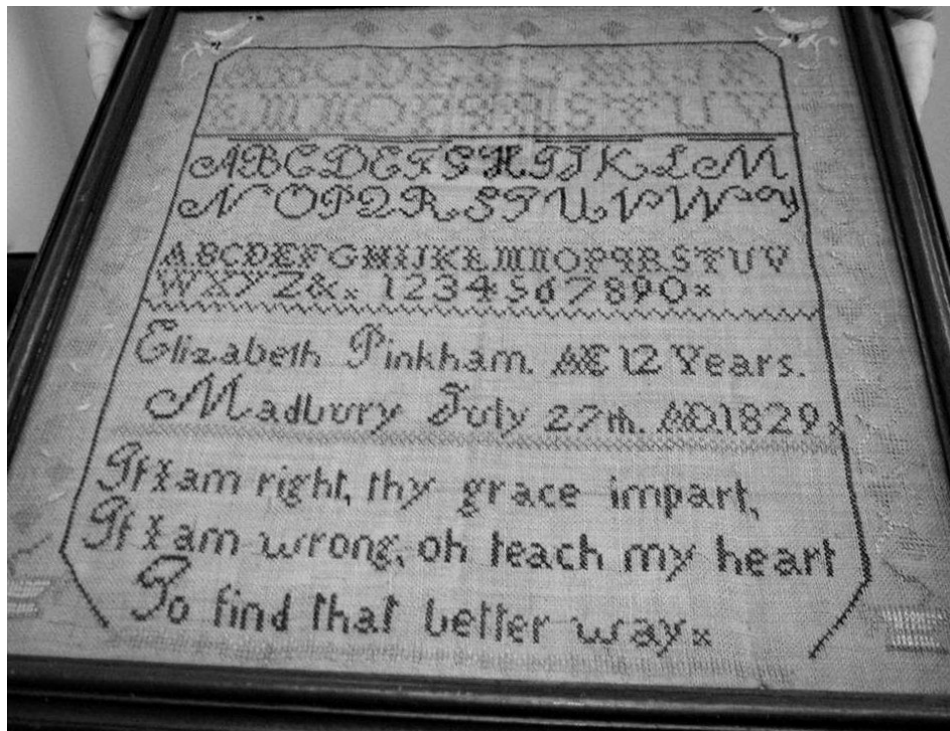 A B C D E F G H I J K
L M N O P Q R S T U V
A B C D E F G H I J K L M
N O P Q R S T U V W X Y
A B C D E F G H I J K L M N O P Q R S T U V
W X Y Z & x 1 2 3 4 5 6 7 8 9 0 x
Elizabeth Pinkham. Æ 12 Years.
Madbury July 27th. AD 1829 x
If I am right, thy grace impart,
If I am wrong, oh teach my heart
To find that better way x